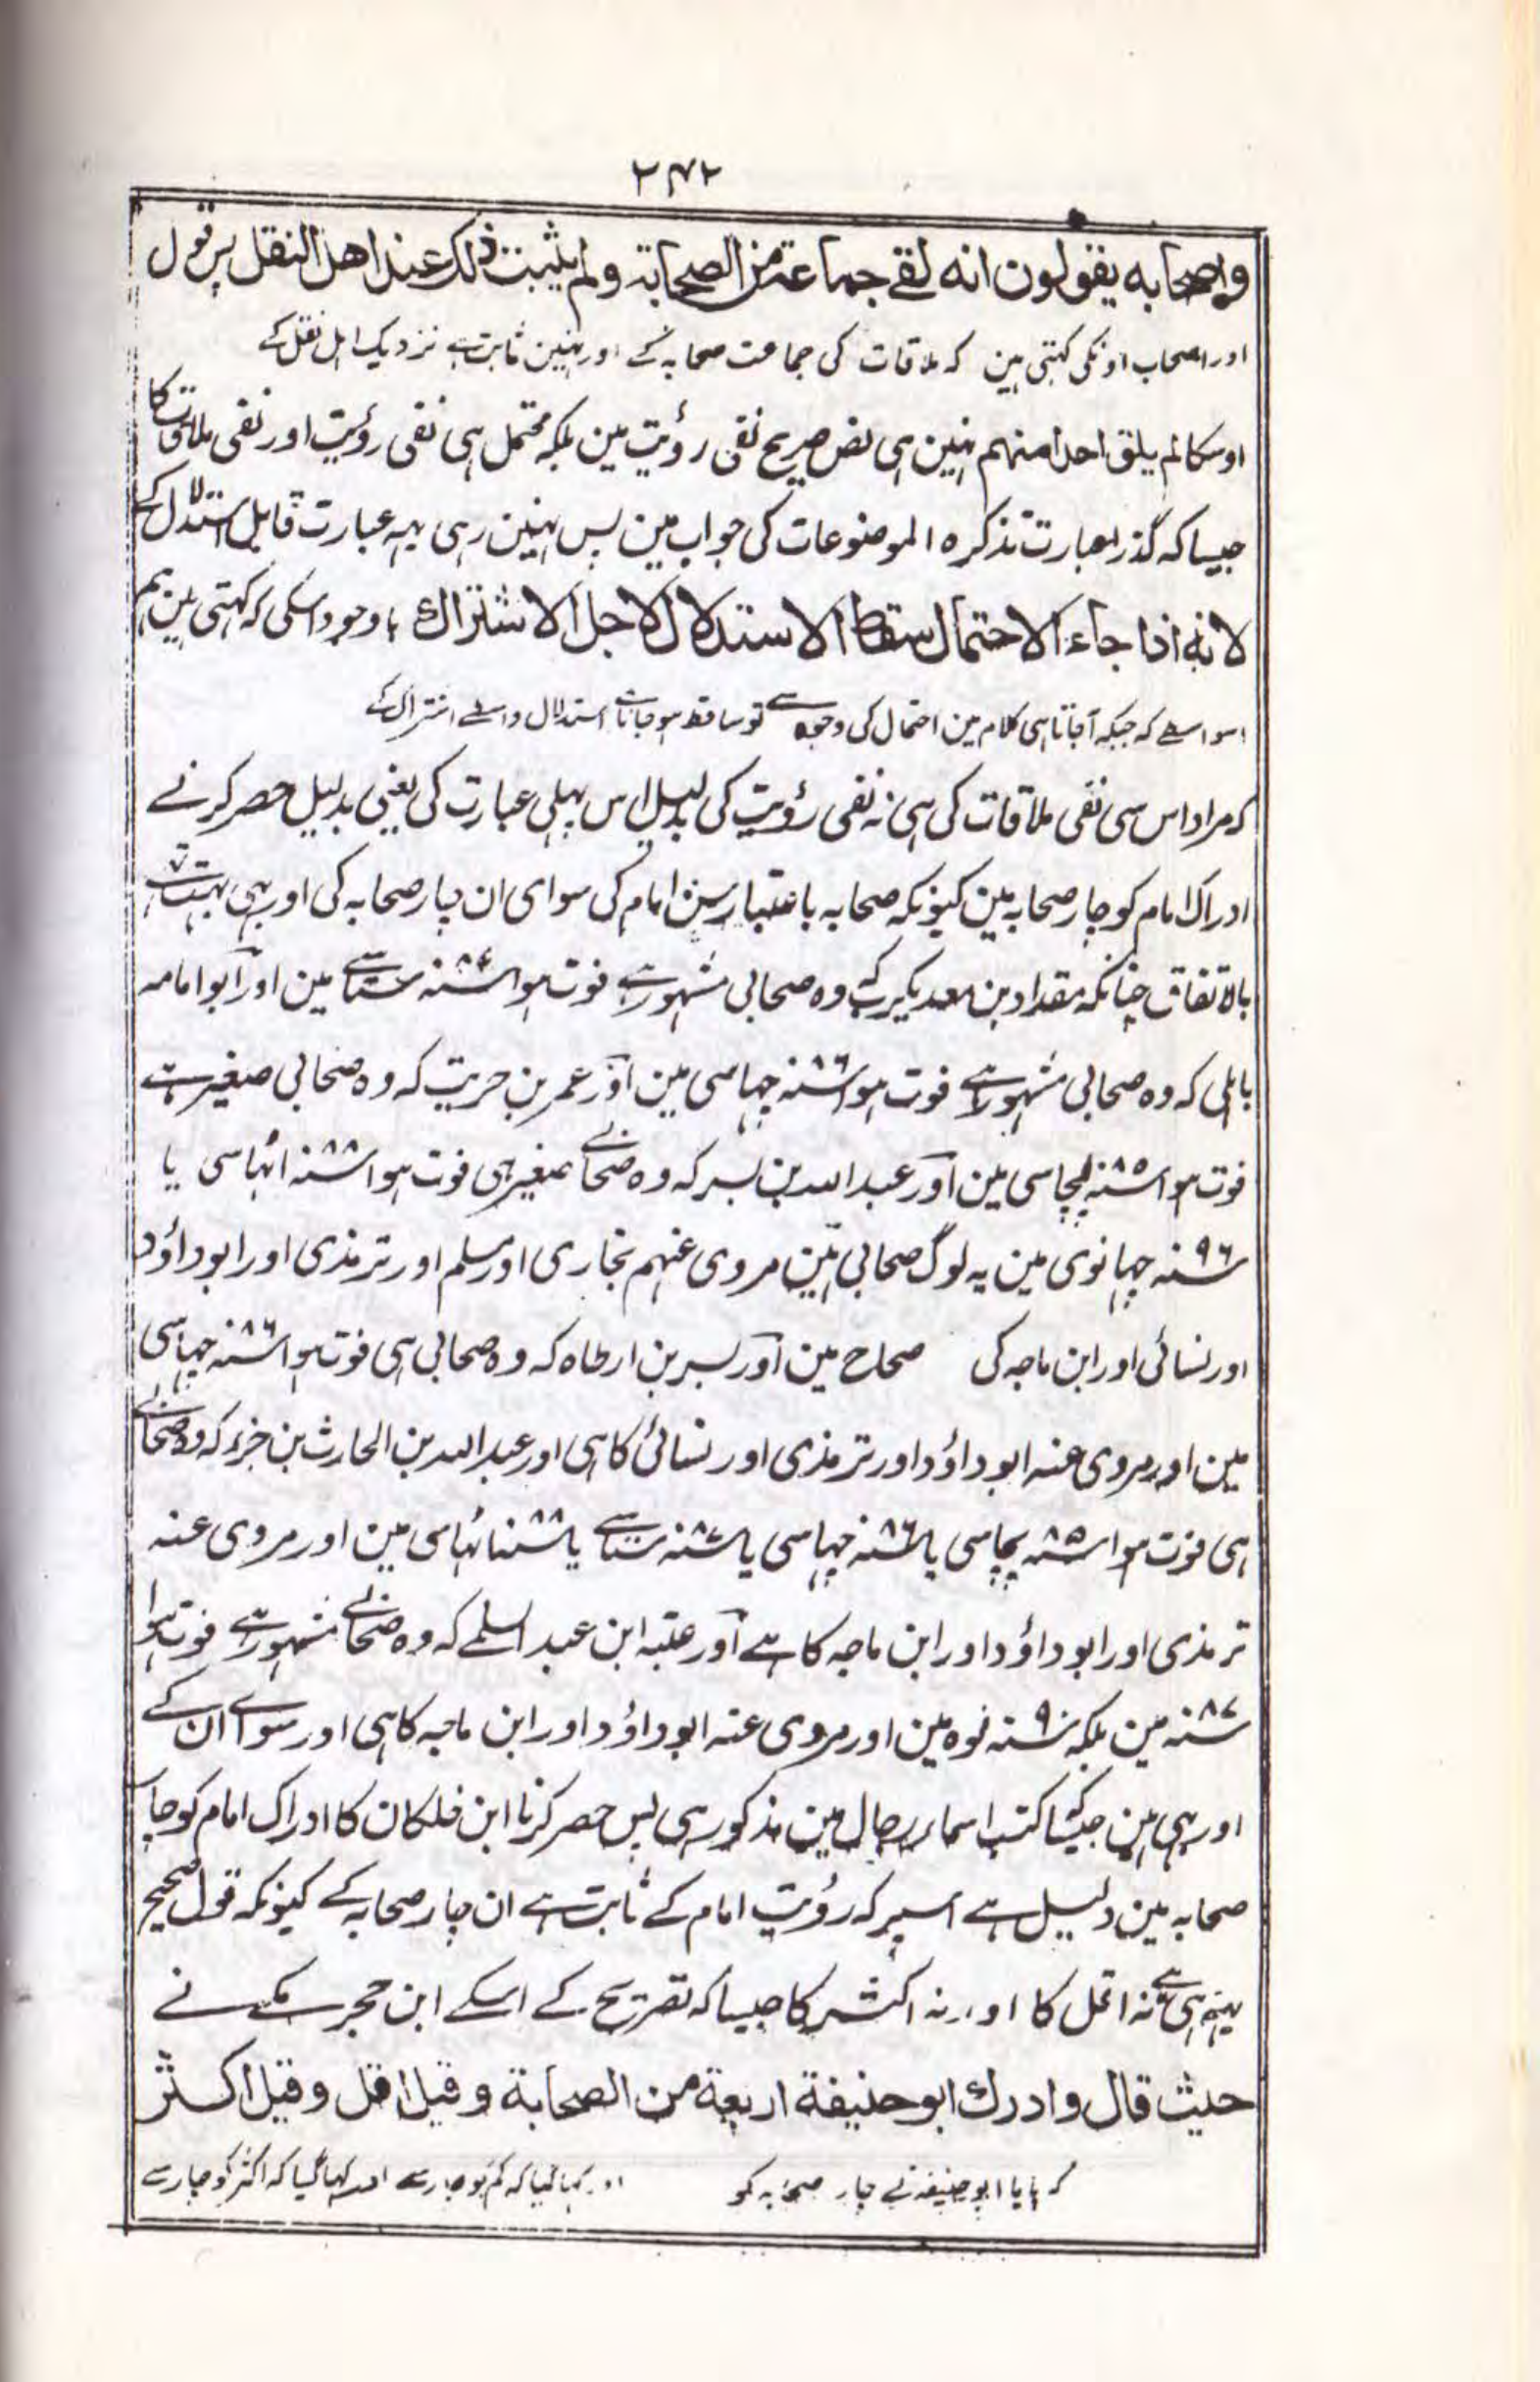 ۲۷۲
واصحابه يقولون انه لقے جماعة من الصحابة ولم يثبت ذلك عند اهل النقل پس قول
اور اصحاب اونکی کہتی ہین کہ ملاقات کی جماعت صحابہ کے اور نہین ثابت ہے نزدیک اہل نقل کے
اوسکا لم يلق احدا منهم نہین ہی نص صریح نفی رؤیت مین بلکہ محتمل ہی نفی رؤیت اور نفی ملاقات کا
جیسا کہ گذرا عبارت تذکرہ الموضوعات کی جواب مین پس نہین رہی یہہ عبارت قابل استدلال کے
لانه اذا جاء الاحتمال سقط الاستدلال لاجل الاشتراك باوجود اسکی کہ کہتی ہین ہم
اسواسطے کہ جبکہ آجاتا ہی کلام مین احتمال کی وجہ سے تو ساقط ہو جاتا ہے استدلال واسطے اشتراک کے
کہ مراد اس سی نفی ملاقات کی ہی نہ نفی رؤیت کی بدلیل اس پہلی عبارت کی یعنی بدلیل حصر کرنے
ادراک امام کو چار صحابہ مین کیونکہ صحابہ باعتبار سن امام کی سوای ان چار صحابہ کی اور بہی بہت تہے
بالاتفاق چنانکہ مقداد بن معدیکرب کہ وہ صحابی مشہور ہے فوت ہوا ۸۷سنہ ستاسے مین اور ابو امامہ
باہلی کہ وہ صحابی مشہور ہے فوت ہوا ۸۶سنہ چہاسی مین اور عمر بن حریث کہ وہ صحابی صغیر ہے
فوت ہوا ۸۵سنہ پچاسی مین اور عبد اللہ بن بسر کہ وہ صحابے صغیر ہی فوت ہوا ۸۸سنہ اٹہاسی یا
۹۶سنہ چہانوی مین یہ لوگ صحابی ہین مروی عنہم بخاری اور مسلم اور ترمذی اور ابو داؤد
اور نسائی اور ابن ماجہ کی صحاح مین اور بسر بن ارطاہ کہ وہ صحابی ہی فوت ہوا ۸۶سنہ چہاسی
مین اور مروی عنہ ابو داؤد اور ترمذی اور نسائی کا ہی اور عبد اللہ بن الحارث بن جزء کہ وہ صحابے
ہی فوت ہوا ۸۵سنہ پچاسی یا ۸۶سنہ چہاسی یا ۸۷سنہ ستاسے یا ۸۸سنہ اٹہاسی مین اور مروی عنہ
ترمذی اور ابو داؤد اور ابن ماجہ کا ہے اور عتبہ ابن عبد السلمے کہ وہ صحابے مشہور ہے فوت ہوا
۸۷سنہ مین بلکہ ۹۰سنہ نوہ مین اور مروی عنہ ابو داؤد اور ابن ماجہ کا ہی اور سواے ان کے
اور بہی ہین جیسا کتب اسماء رجال مین مذکور ہی پس حصر کرنا ابن خلکان کا ادراک امام کو چار
صحابہ مین دلیل ہے اسپر کہ رؤیت امام کے ثابت ہے ان چار صحابہ کے کیونکہ قول صحیح
یہہ ہی ہے نہ اقل کا اور نہ اکثر کا جیسا کہ تصریح کے اسکے ابن حجر مکے نے
حيث قال وادرك ابو حنيفة اربعة من الصحابة وقيل اقل وقيل اكثر
کہ پایا ابو حنیفہ نے چار صحابہ کو اور کہا گیا کہ کم کو چار سے اور کہا گیا کہ اکثر کو چار سے